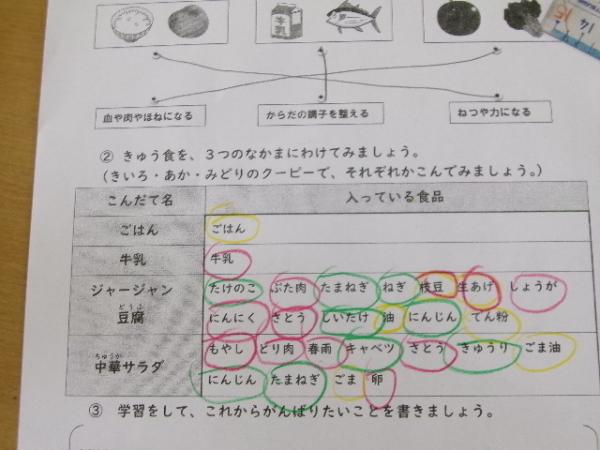 牛乳
14 15
血や肉やほねになる からだの調子を整える ねつや力になる
② きゅう食を、3つのなかまにわけてみましょう。
(きいろ・あか・みどりのクーピーで、それぞれかこんでみましょう。)
こんだて名 入っている食品
ごはん ごはん
牛乳 牛乳
ジャージャン たけのこ ぶた肉 たまねぎ ねぎ 枝豆 生あげ しょうが
とうふ
豆腐 にんにく さとう しいたけ 油 にんじん でん粉
もやし とり肉 春雨 キャベツ さとう きゅうり ごま油
ちゅうか
中華サラダ
にんじん たまねぎ ごま 卵
③ 学習をして、これからがんばりたいことを書きましょう。